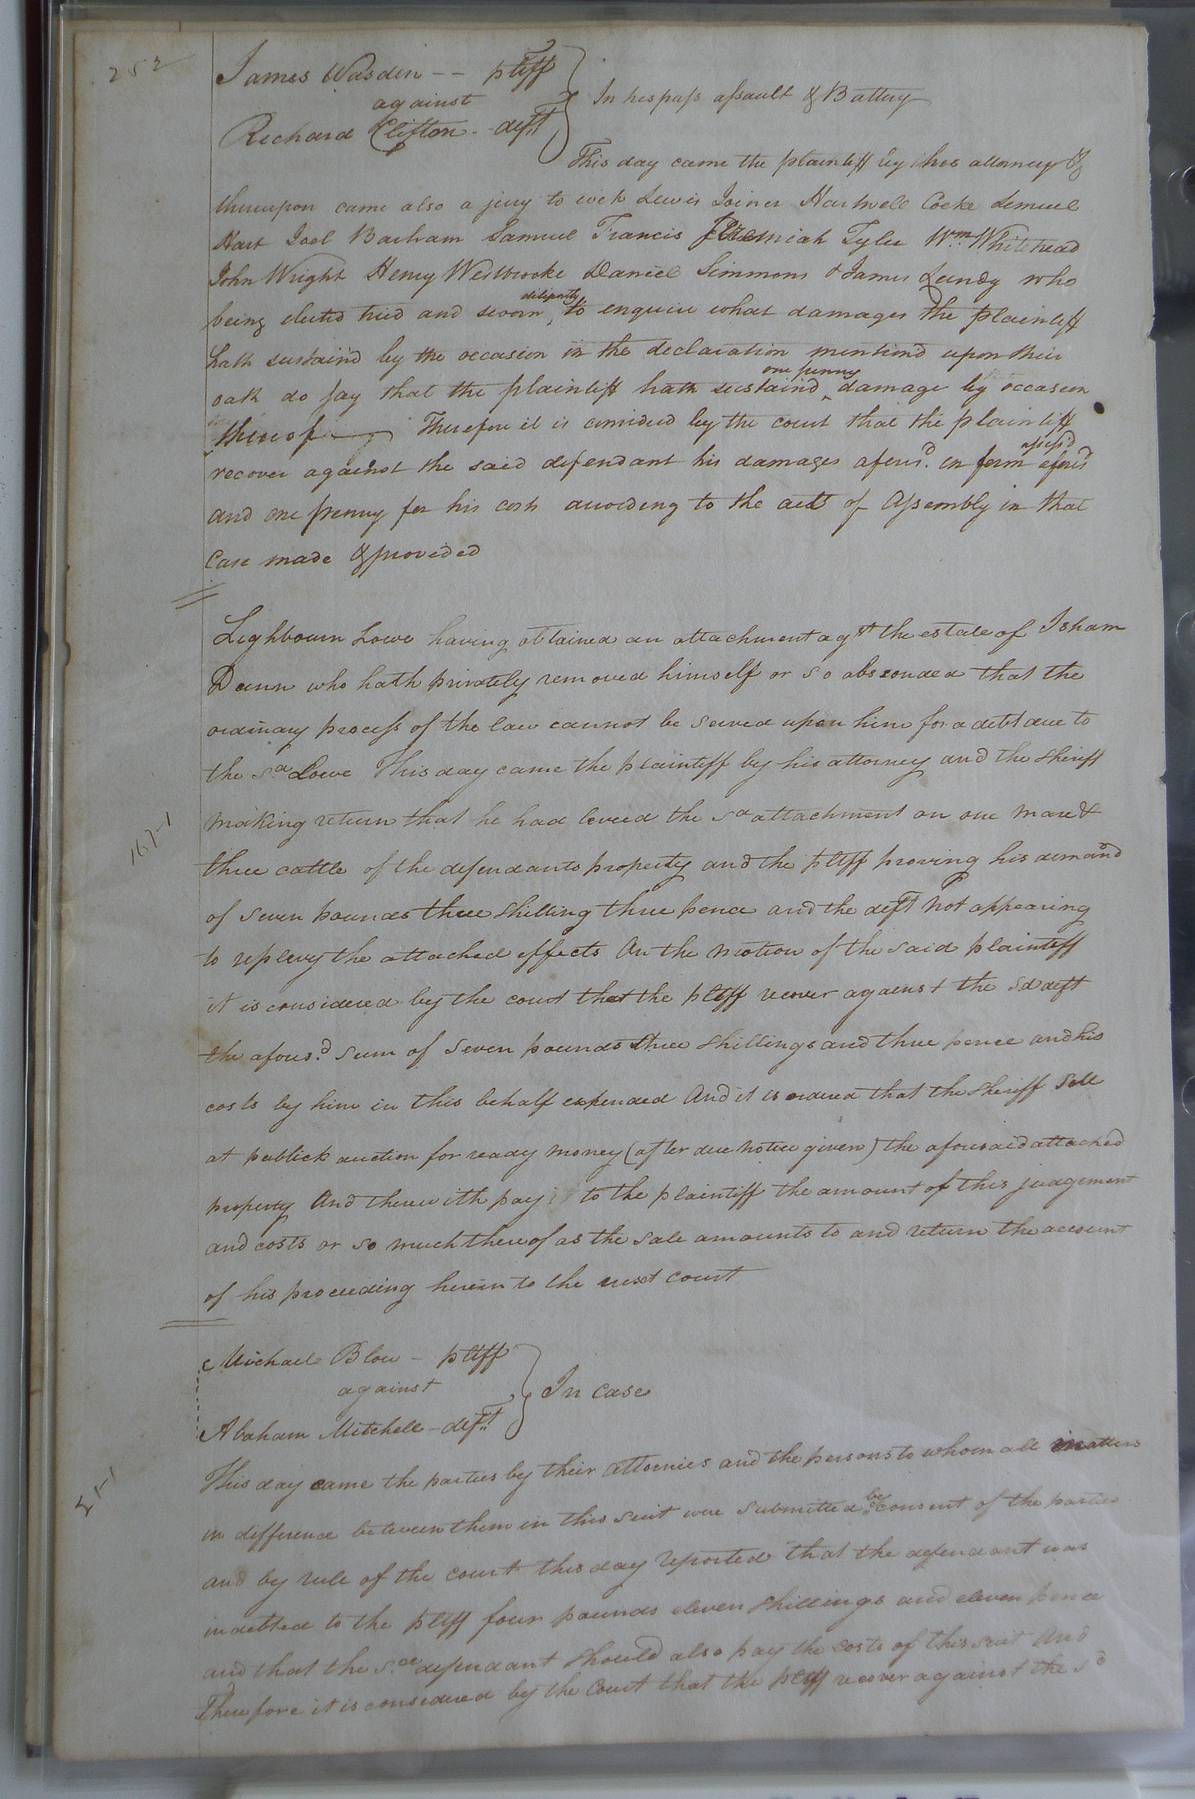 252
James Wasden -- pltff
against
Richard Clifton - deft
In trespass assault & Battery
This day came the plaintiff by his attorney &
thereupon came also a jury to wit Lewis Joiner Hartwell Cocke Lemuel
Hart Joel Barham Samuel Francis Jeremiah Tyler Wm Whitehead
John Wright Henry Westbrooke Daniel Simmons & James Lundy who
being elected tried and sworn diligently to enquire what damages the plaintiff
hath sustain'd by the occasion in the declaration mention'd upon their
oath do say that the plaintiff hath sustain'd one penny damage by occasion
thereof Therefore it is considered by the court that the plaintiff
recover against the said defendant his damages aforesd. in form aforesd assess'd
and one penny for his costs according to the acts of Assembly in that
case made & provided
Lighbourn Lowe having obtained an attachment agst the estate of Isham
Dunn who hath privately removed himself or so absconded that the
ordinary process of the law cannot be served upon him for a debt due to
the sd Lowe This day came the plaintiff by his attorney and the sheriff
making return that he had levied the sd attachment on one mare &
167-1
three cattle of the defendants property and the pltff proving his demand
of seven pounds three shilling three pence and the deft not appearing
to replevy the attached effects On the motion of the said plaintiff
it is considered by the court that the pltff recover against the sd deft
the aforesd. sum of seven pounds three shillings and three pence and his
costs by him in this behalf expended And it is ordered that the sheriff sell
at publick auction for ready money (after due notice given) the aforesaid attached
property And therewith pay to the plaintiff the amount of this judgement
and costs or so much thereof as the sale amounts to and return the account
of his proceeding herein to the next court
Michael Blow - pltff
against
Abaham Mitchell - deft
In case
This day came the parties by their attornies and the persons to whom all matters
in difference between them in this suit were submitted by consent of the parties
and by rule of the court this day reported that the defendant was
indetted to the pltff four pounds eleven shillings and eleven pence
and that the sd defendant should also pay the costs of this suit And
Therefore it is considered by the Court that the pltff recover against the sd